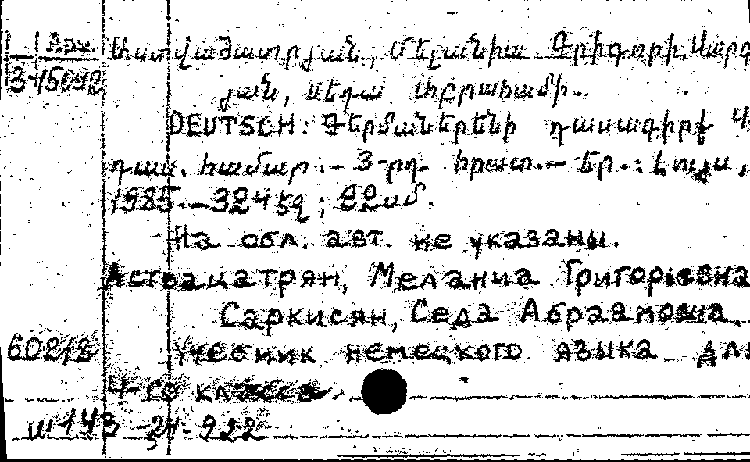 Арм. Աստվածատրյան, Մելանիա Գրիգորի, Սարգ
3-15092 յան, Սեդա Աբրահամի.
DEUTSCH: Գերմաներենի դասագիրք 4
դաս. համար. – 3-րդ հրատ. – Եր.: Լույս,
1985. – 324 էջ; 22սմ.
На обл. авт. не указаны.
Аствацатрян, Мелания Григорьевна
Саркисян, Седа Абраамовна.
60212 Учебник немецкого языка для
4-го класса.
24-922